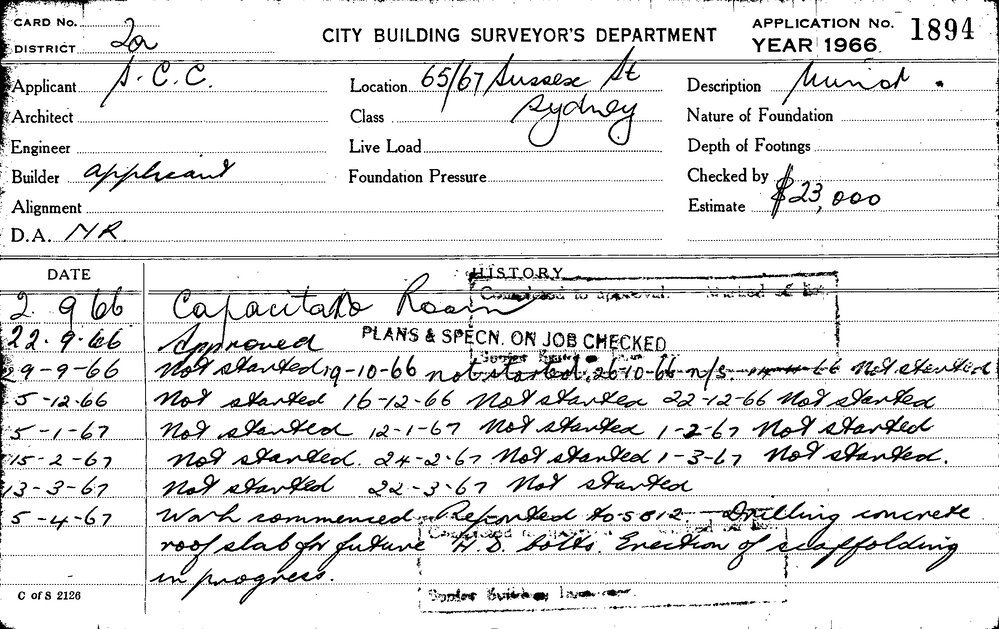 CARD No.
DISTRICT 2a
CITY BUILDING SURVEYOR'S DEPARTMENT
APPLICATION No. 1894
YEAR 1966
Applicant S.C.C.
Location 65/67 Sussex St
Sydney
Description
Architect
Class
Nature of Foundation
Engineer
Live Load
Depth of Footings
Builder applicant
Foundation Pressure
Checked by
Alignment
Estimate $23,000
D.A. NR
DATE
HISTORY
2 9 66 Room
22.9.66 Approved PLANS & SPECN. ON JOB CHECKED
29-9-66 Not started 19-10-66 not started. 26-10-66 n/s. Not started
5-12-66 Not started 16-12-66 Not started 22-12-66 Not started
5-1-67 Not started 12-1-67 Not started 1-2-67 Not started
15-2-67 Not started. 24-2-67 Not started 1-3-67 Not started.
13-3-67 Not started 22-3-67 Not started
5-4-67 Work commenced. Reported to Drilling concrete
roof slab for future H.D. bolts. Erection of scaffolding
in progress.
C of S 2126